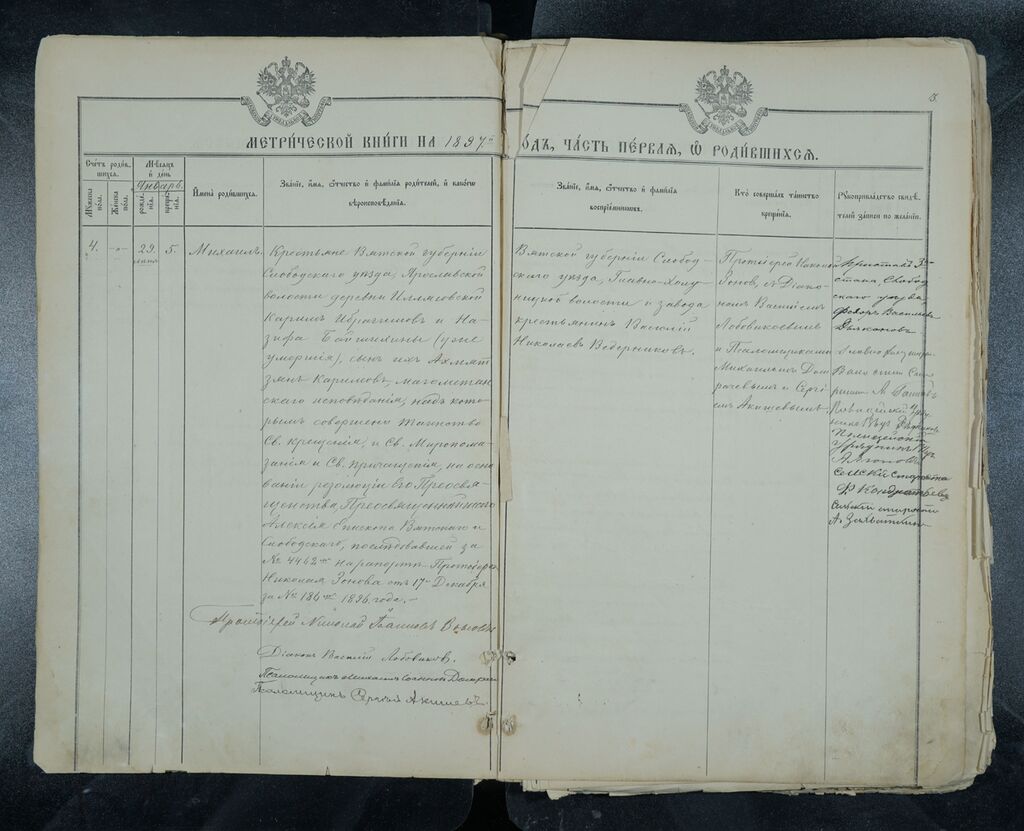 МЕТРИ́ЧЕСКОЙ КНИ́ГИ НА 1897й
ГО́ДЪ, ЧА́СТЬ ПЕ́РВАЯ, Ѡ РОДИ́ВШИХСѦ.
Счетъ роди́вшихся.
Мужеска пол.
Женска пол.
Мѣсяцъ и день
Январь
рожденія.
крещенія.
Имена родившихся.
Званіе, имя, отчество и фамилія родителей, и какого
вѣроисповѣданія.
Званіе, имя, отчество и фамилія
воспріемниковъ.
Кто совершалъ таинство
крещенія.
Рукоприкладство свидѣ-
телей записи по желанію.
4.
29
5.
Михаилъ
Крестьяне Вятской губерніи
Слободскаго уѣзда, Ярославской
волости деревни
Каримъ Ибрагимовъ и На-
зифа (уже
умершія), сынъ ихъ Ахмет
зянъ Каримовъ, магометан
скаго исповѣданія, надъ кото
рымъ совершены таинство
Св. крещенія, и Св. Миропома
занія и Св. Причащенія, на осно
ваніи резолюціи Его Преосвя
щенства, Преосвященнѣйшаго
Алексія Епископа Вятскаго и
Слободскаго, послѣдовавшей за
№ 4462 на рапортѣ Протоіерея
Николая Зонова отъ 17 Декабря
за № 186 1896 года.-
Вятской губерніи Слобод-
скаго уѣзда, Главно-Холу-
ницкой волости и завода
крестьянинъ Василій
Николаевъ Ведерниковъ.
Протоіерей Николай
Зоновъ, съ Діако-
номъ Василіемъ
Лобовиковымъ
и Псаломщиками
Михаиломъ Дом
рачевымъ и Сергі
емъ Акишевымъ.
Приставъ 3го
стана, Слобод
скаго уѣзда,
Федоръ Васильевъ
Дьяконовъ
Главно-Холуниц.
Полицейскій
Урядникъ
Сельскій Староста
Ф Кондратьевъ
Протоіерей Николай Іоанновъ Зоновъ
Діаконъ Василій Лобовиковъ.
Псаломщикъ Михаилъ Домрачевъ
Псаломщикъ Сергій Акишевъ